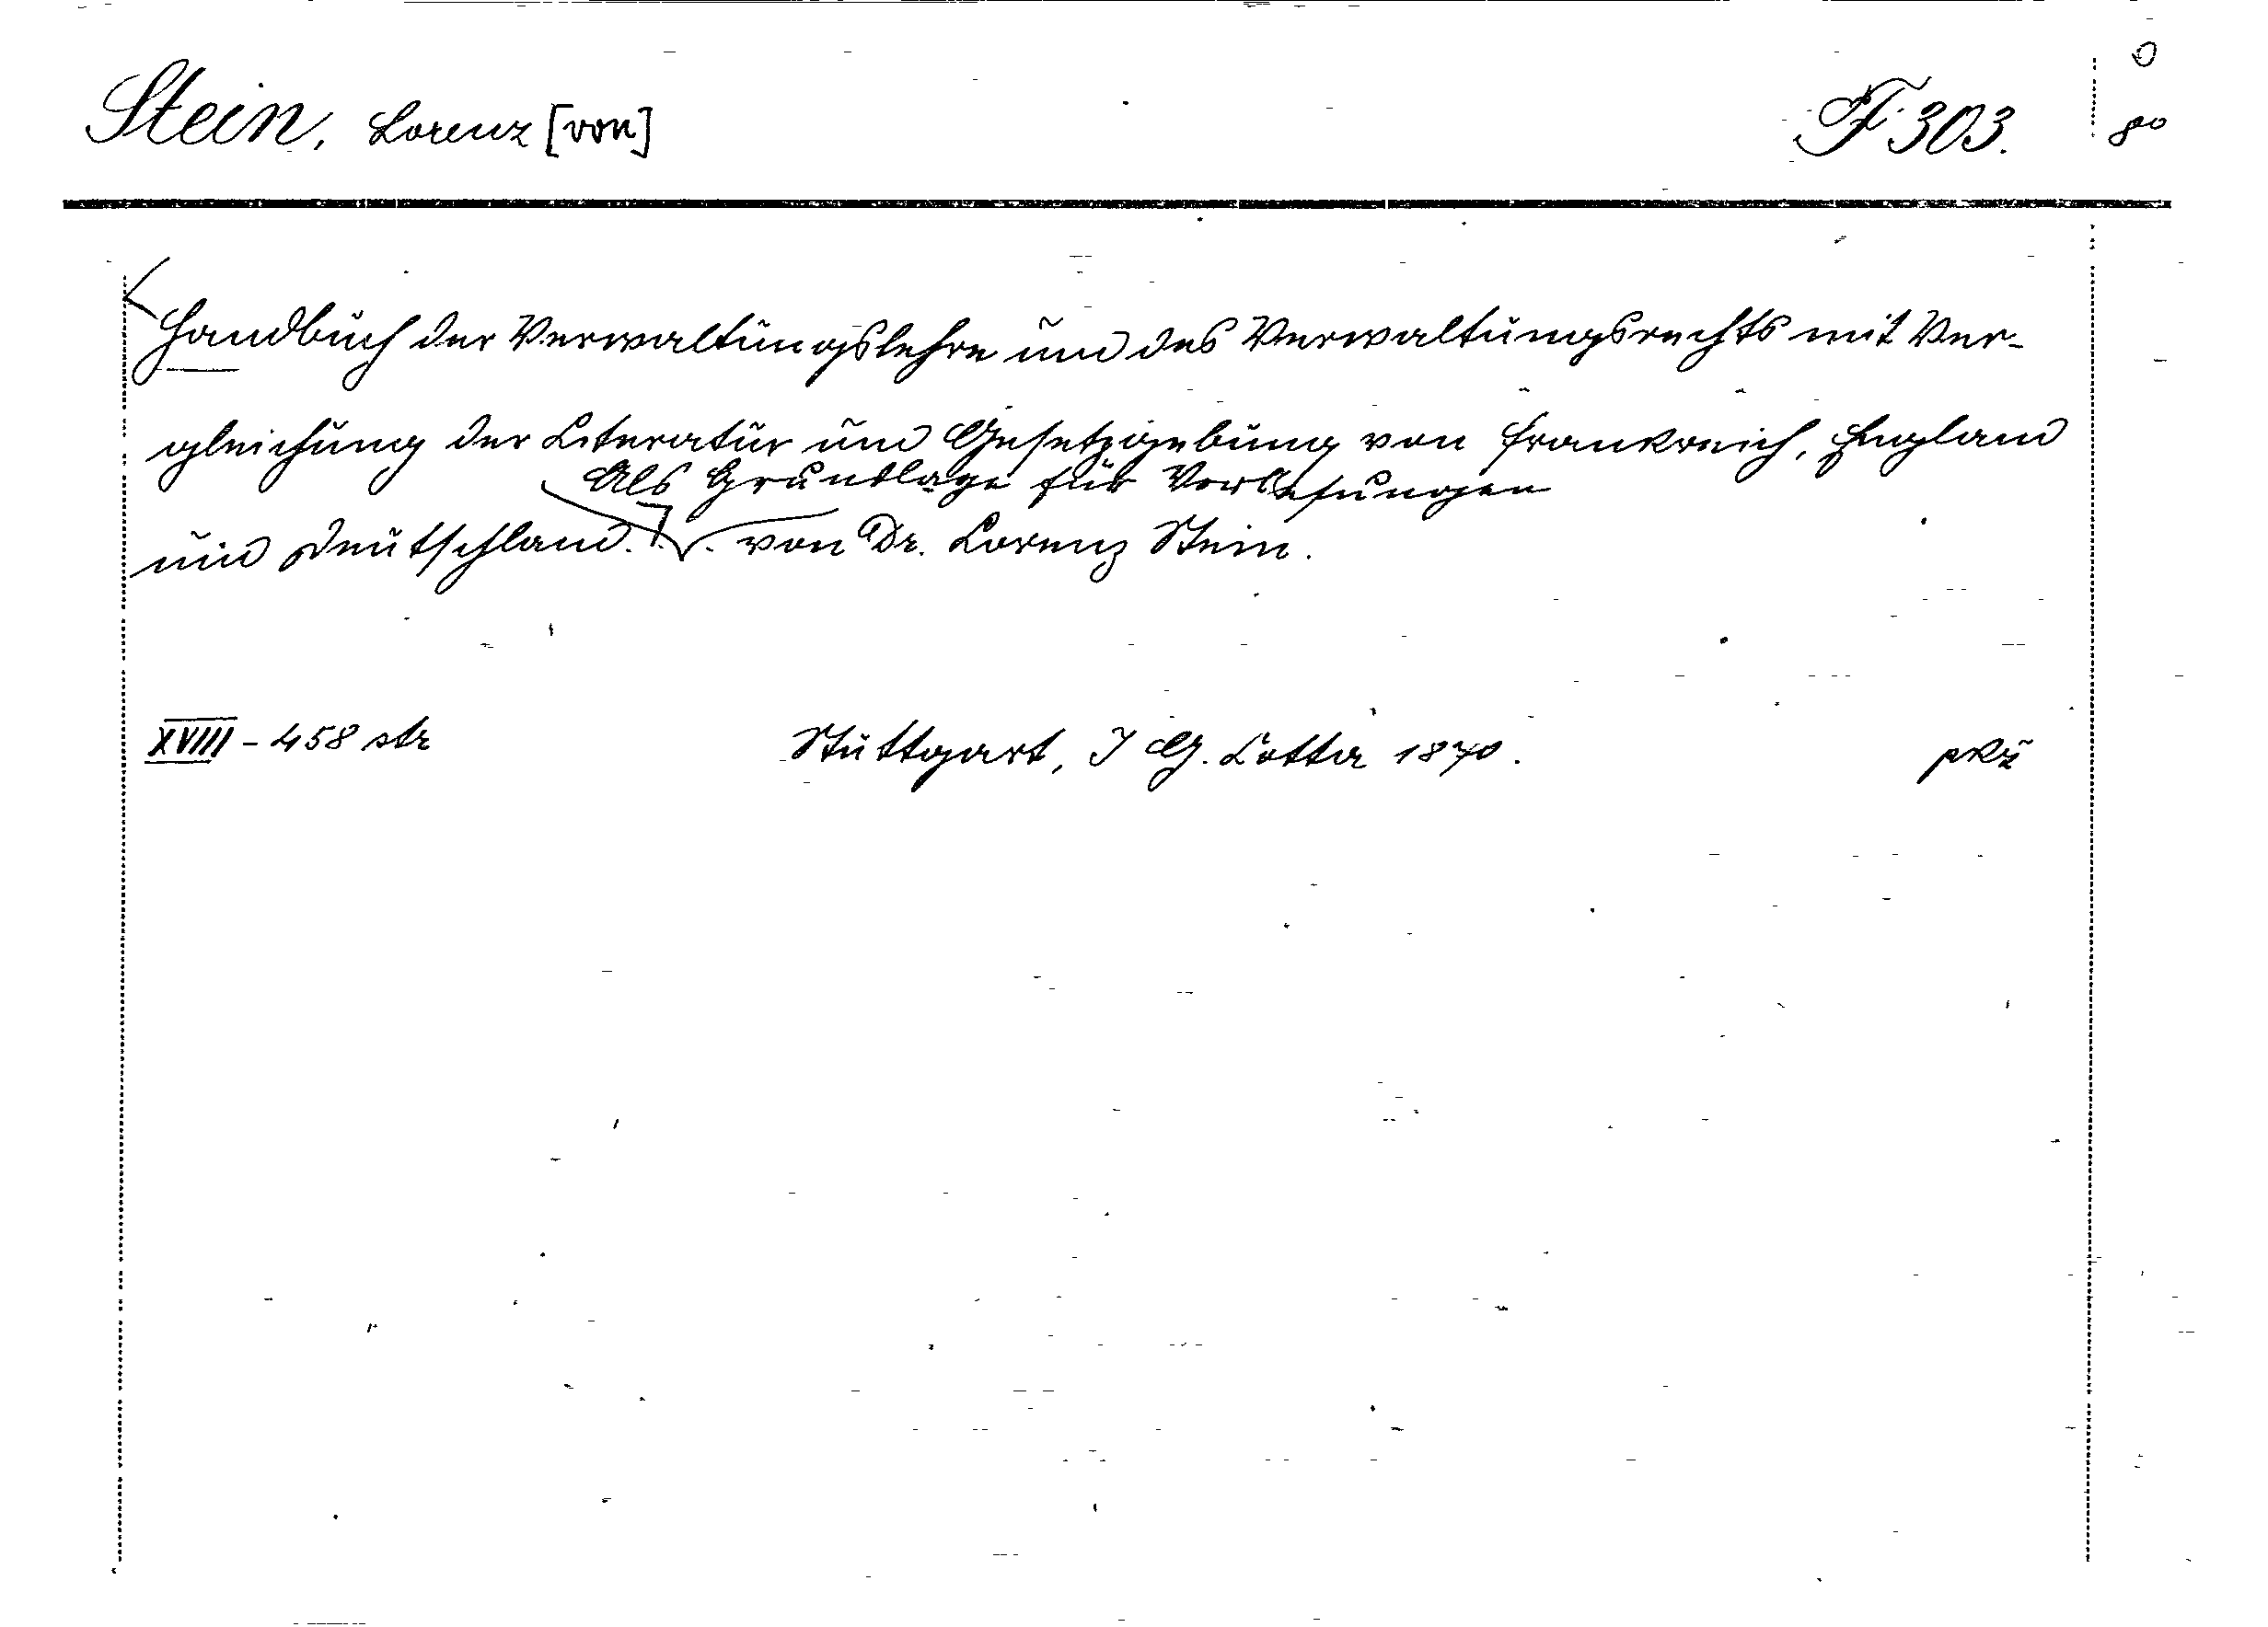 Stein, Lorenz [von]
F 303.
8°
Handbuch der Verwaltungslehre und des Verwaltungsrechts mit Ver-
gleichung der Literatur und Gesetzgebung von Frankreich, England
Als Grundlage für Vorlesungen
und Deutschland. von Dr. Lorenz Stein.
XVIII - 458 str
Stuttgart, J G. Cotta 1870.
pkž